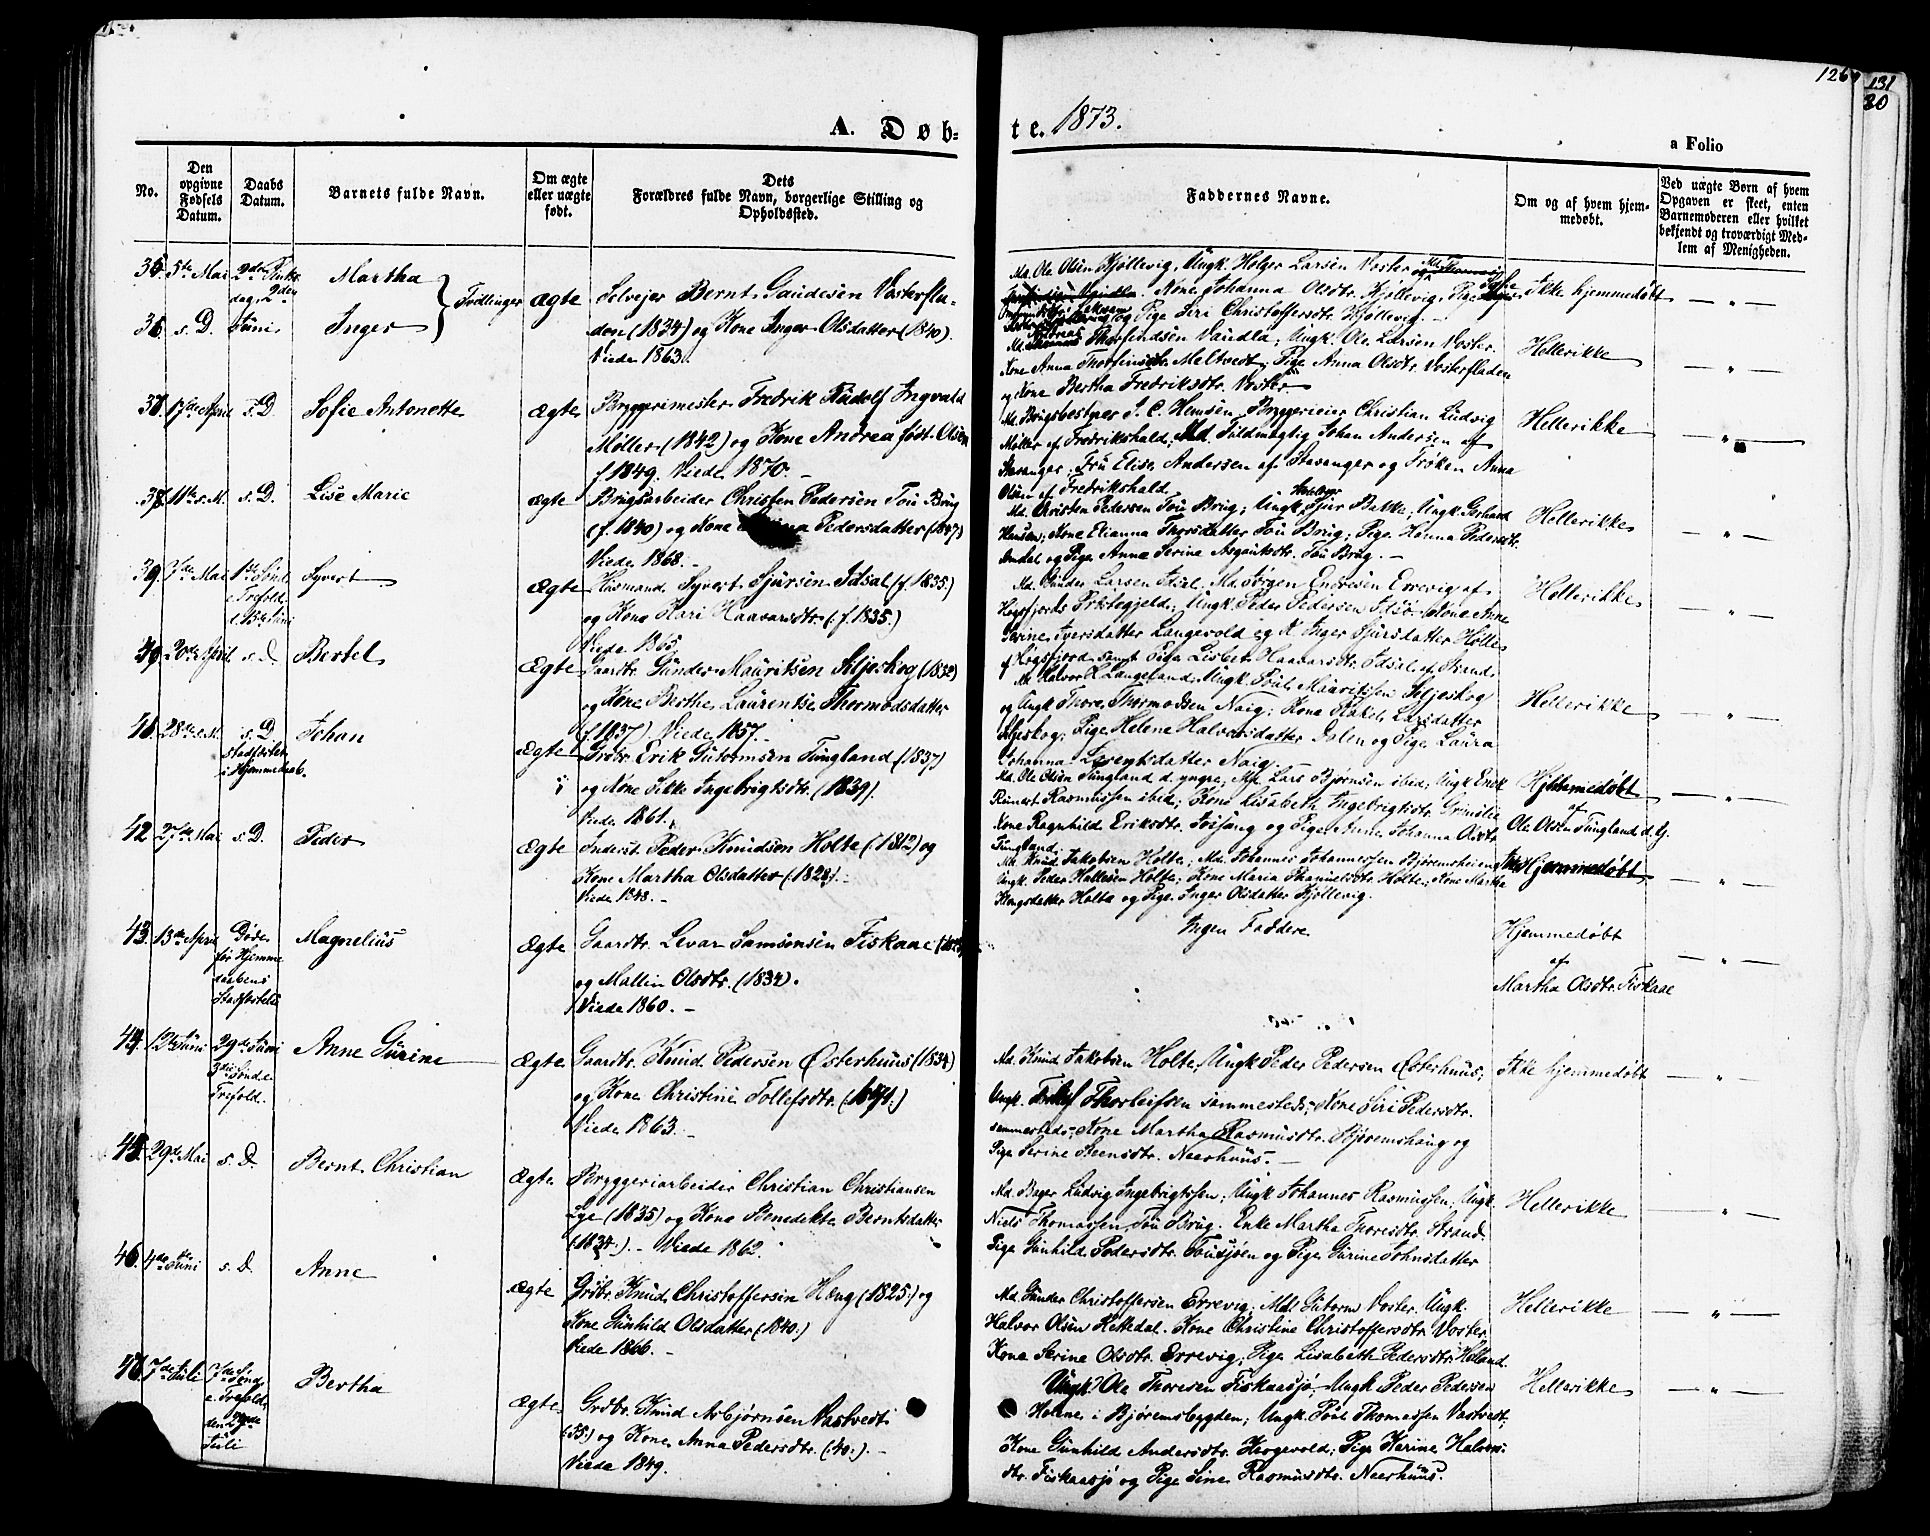 1269 131
30
A. Døb-
te. 1873.
a Folio
No.
Den opgivne Fødsels Datum.
Daabs Datum.
Barnets fulde Navn.
Om ægte eller uægte født.
Dets
Forældres fulde Navn, borgerlige Stilling og
Opholdssted.
Faddernes Navne.
Om og af hvem hjem-
medøbt.
Ved uægte Børn af hvem
Opgaven er skeet, enten
Barnemoderen eller hvilket
bekjendt og troværdigt Med-
lem af Menigheden.
35. 5te Mai Martha Tvillinger ægte Selvejer Bernt Gaudesen Vosterfla-
36. s. D. Juni Inger den (1834) og Kone Inger Olsdatter (1840).
Viede 1863.
Md. Ole Olsen Kjøllevig, Ungk. Holger Larsen Voster
Kone Johanna Olsdtr. Kjøllevig, Pige
og Pige Siri Christoffersdtr. Kjøllevig.
Ikke hjemmedøbt — „ —
Thorfindsen Vandla; Ungk. Ole Larsen Voster.
Kone Anna Thorfinsdtr. Meltvedt; Pige Anna Olsdtr. Vosterfladen
og Kone Bertha Fredriksdtr. Voster
Hellerikke — „ —
37. 17de April s. D. Sofie Antonette ægte Bryggerimester Fredrik Rudolf Ingvald
Møller (1842) og Kone Andrea født Olsen
f 1849. Viede 1870. —
Md. Brugsbestyrer J. C. Hemsen, Bryggerieier Christian Ludvig
Møller af Fredrikshald; Md. Fuldmægtig Johan Andersen af
Stavanger; Fru Elise Andersen af Stavanger og Frøken Anna
Olsen af Fredrikshald.
Hellerikke — „ —
38. 11te s. M. s. D. Lise Marie ægte Brugsarbeider Christen Pedersen Tou Brug
(f. 1840) og Kone Pedersdatter (1847)
Viede 1868. —
Md. Christen Pedersen Tou Brug; Ungk. Sjur Bakke; Ungk. Gerhard
Hansen; Kone Elianna Thorsdatter Tou Brug; Pige Hanna Pedersdtr.
og Pige Anna Serine Asgautsdtr. Tou Brug. —
Hellerikke — „ —
39. 7de Mai Syvert ægte Huusmand Syvert Sjursen Idsal (f. 1835.)
og Kone Kari Haavarsdtr. (f. 1835.)
Viede 1865.
Md. Gunder Larsen Idsal. Md. Jørgen Endresen Errevig af
Høgsfjords Præstegjeld; Ungk. Peder Pedersen Idsø. Kone Anne
Serine Iversdatter Langevold og K. Inger Sjursdatter Holle
af Høgsfjord samt Pige Lisbet Haavarsdtr. Idsal af Strand.
Hellerikke — „ —
40. 20de April s. D. Bertel ægte Gaardbr. Gunder Mauritsen Seljeskog (1832)
og Kone Berthe Laurentse Thormodsdatter
(f 1837) Viede 1857.
Md. Halvor K. Langeland; Ungk. Poul Mauritssen Seljeskog
og Ungk Thore Thormodsen Naig; Kone Rakel Larsdatter
Seljeskog; Pige Helene Halvorsdatter Dalen og Pige Laura
Johanna Larentsdatter Naig.
Hellerikke — „ —
41. 28de s. M. s. D Johan
Stadfæstet
i Hjemmedaab.
ægte Grdbr. Erik Gutormsen Tungland (1837)
og Kone Silke Ingebrigtsdtr. (1839)
Viede 1861.
Md. Ole Olsen Tungland d. yngre; Md. Lars Bjørnsen ibid; Ungk Enok
Reinert Rasmussen ibid; Kone Lisabeth Ingebrigtsdtr. Grimslie
Kone Ragnhild Eriksdtr. og Pige Anne Johanna Olsdtr.
Tungland.
Hjemmedøbt
af
Ole Olsen Tungland d. y. — „ —
42 27de Mai s. D. Peder ægte Inderst Peder Knudsen Holta (1812) og
Kone Martha Olsdatter (1828). —
Viede 1848. —
Md. Knud Jakobsen Holte; Md. Johannes Johannessen Bjøremsheien
Ungk. Peder Hallesen Holte; Kone Maria Thomasdtr. Holte; Kone Martha
Kongsdatter Holta og Pige Inger Olsdatter Kjøllevig.
Hjemmedøbt — „ —
43. 13de April Døde
før Hjemme
daabens
Stadfæstelse
Magnelius ægte Gaardbr. Levar Samsonsen Fiskaae
og Mallin Olsdtr. (1834).
Viede 1860. —
Ingen Faddere
Hjemmedøbt
af
Martha Olsdtr. Fiskaae — „ —
44. 12te Juni 29de Juni
3die Sønd. e.
Trefold.
Anne Gurine ægte Gaardbr. Knud Pedersen Østerhuus (1834)
og Kone Christine Tollefsdtr. (1841.)
Viede 1863. —
Md. Knud Jakobsen Holte, Ungk Peder Pedersen Østerhuus;
Ungk. Tollef Thorleifsen sammesteds; Kone Siri Pedersdtr.
sammesteds; Kone Martha Rasmusdtr. Bjøremshaug og
Pige Serine Steensdtr. Neerhuus. —
Ikke hjemmedøbt — „ —
45. 29de Mai s. D. Bernt Christian ægte Bryggeriarbeider Christian Christiansen
Lye (1835) og Kone Benedikte Berntsdatter
(1834.) — Viede 1862.
Md. Bager Ludvig Ingebrigtsen; Ungk Johannes Rasmussen; Ungk.
Niels Thomassen Tou Brug. Enke Martha Thoresdtr. Strand.
Pige Gunhild Pedersdtr. Tousjøen og Pige Gurine Johnsdatter
Hellerikke — „ —
46. 4de Juni s. D. Anne ægte Grdbr. Knud Christoffersen Haug (1825.) og
Kone Gunhild Olsdatter (1840.)
Viede 1866. —
Md. Gunder Christoffersen Errevig; Md. Gutorm Voster. Ungk.
Halvor Olsen Kettedal. Kone Christine Christoffersdtr. Voster
Kone Serine Olsdtr. Errevig; Pige Lisabeth Pedersdtr. Helland
Hellerikke — „ —
47. 7de Juli 7de Sønd.
e. Trefold.
den 27de
Juli
Bertha ægte Grdbr. Knud Asbjørnsen Vastvedt
(55.) og Kone Anna Pedersdtr. (40.). —
Viede 1849.
Ungk. Ole Thoresen Fiskaasjø, Ungk Peder Pedersen
Holene i Bjøremsbygden; Ungk. Poul Thomassen Vastvedt;
Kone Gunhild Andersdtr. Krogevold; Pige Karine Halvors-
dtr. Fiskaasjø og Pige Sine Rasmusdtr. Neerhuus.
Hellerikke — „ —